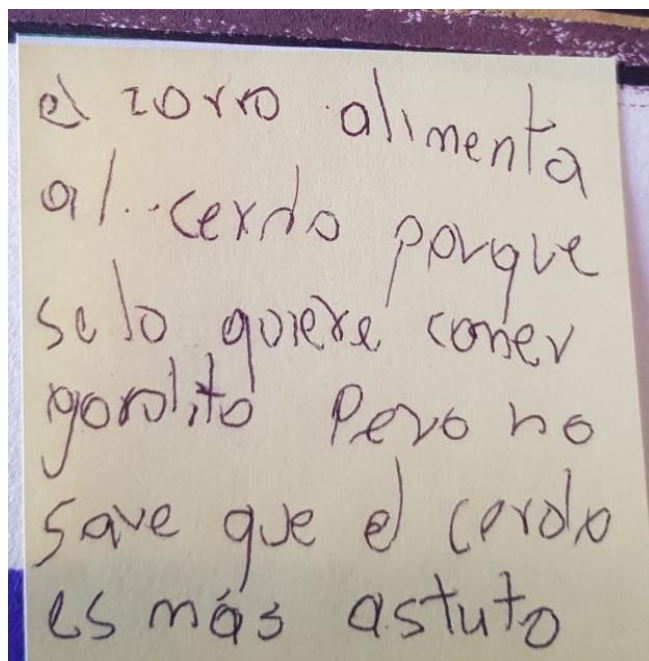 el zorro alimenta
al..cerdo porque
se lo quiere comer
gordito Pero no
save que el cerdo
es más astuto